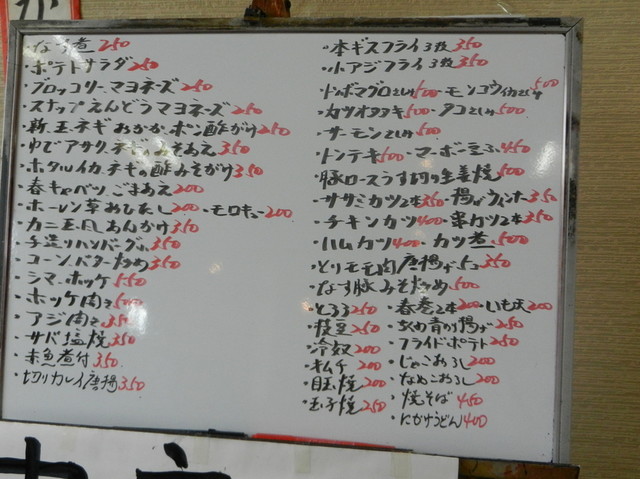 なす煮 250
・ポテトサラダ 250
・ブロッコリーマヨネーズ 250
・スナップえんどうマヨネーズ 250
・新玉ネギおかかポン酢がけ 250
・ゆでアサリ、ネギ、みそあえ 350
・ホタルイカ、ネギの酢みそがけ 350
・春キャベツ、ごまあえ 200
・ホーレン草おひたし 200 ・モロキュー 200
・カニ玉風あんかけ 350
・手造りハンバーグ 350
・コーンバター炒め 350
・シマ、ホッケ 550
・ホッケ開き 500
・アジ開き 350
・サバ塩焼 350
・赤魚煮付 350
・切りカレイ唐揚 350
・本ギスフライ3枚 350
・小アジフライ3枚 350
・モンゴウイカ 500
・カツオタタキ 500 ・タコさしみ 500
・サーモンさしみ 500
・トンテキ 500 ・マーボー豆ふ 450
・豚ロースうす切り生姜焼 500
・ササミカツ2本 350 ・揚げウィンナー 350
・チキンカツ 400 ・串カツ2本 350
・ハムカツ 400 ・カツ煮 500
・とりモモ肉唐揚げ5コ 350
・なす豚みそ炒め 500
・とろろ 250 ・春巻2本 200 ・いも天 200
・枝豆 250 ・ちくわ青のり揚げ 250
・冷奴 200 ・フライドポテト 250
・キムチ 200 ・じゃこおろし 200
・目玉焼 200 ・なめこおろし 200
・玉子焼 250 ・焼そば 450
・にかけうどん 400